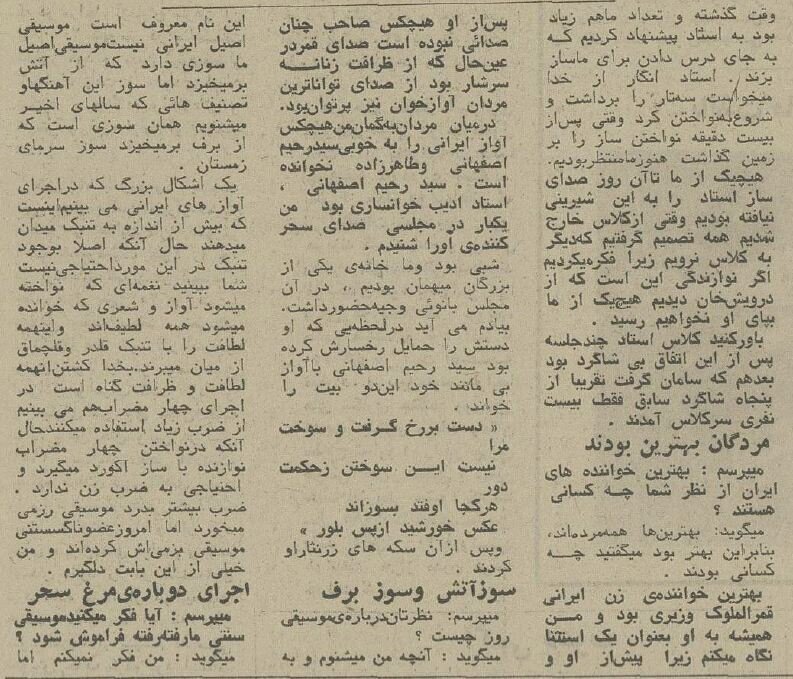 وقت گذشته و تعداد ماهم زیاد
بود به استاد پیشنهاد کردیم که
به جای درس دادن برای ماساز
بزند . استاد انگار از خدا
میخواست سه‌تار را برداشت و
شروع‌به‌نواختن کرد وقتی پس‌از
بیست دقیقه نواختن ساز را بر
زمین گذاشت هنوزمامنتظربودیم.
هیچیک از ما تاآن روز صدای
ساز استاد را به این شیرینی
نیافته بودیم وقتی ازکلاس خارج
شدیم همه تصمیم گرفتیم که‌دیگر
به کلاس نرویم زیرا فکرمیکردیم
اگر نوازندگی این است که از
درویش‌خان دیدیم هیچیک از ما
بپای او نخواهیم رسید .
باورکنید کلاس استاد چندجلسه
پس از این اتفاق بی شاگرد بود
بعدهم که سامان گرفت تقریبا از
پنجاه شاگرد سابق فقط بیست
نفری سرکلاس آمدند .
مردگان بهترین بودند
میپرسم : بهترین خواننده های
ایران از نظر شما چه کسانی
هستند ؟
میگوید: بهترین‌ها همه‌مرده‌اند،
بنابراین بهتر بود میگفتید چه
کسانی بودند .
بهترین خواننده‌ی زن ایرانی
قمرالملوک وزیری بود و من
همیشه به او بعنوان یک استثنا
نگاه میکنم زیرا پیش‌از او و
پس‌از او هیچکس صاحب چنان
صدائی نبوده است صدای قمردر
عین‌حال که از ظرافت زنانه
سرشار بود از صدای تواناترین
مردان آوازخوان نیز پرتوان‌بود.
درمیان مردان‌به‌گمان‌من‌هیچکس
آواز ایرانی را به خوبی‌سیدرحیم
اصفهانی وطاهرزاده نخوانده
است . سید رحیم اصفهانی ،
استاد ادیب خوانساری بود من
یکبار در مجلسی صدای سحر
کننده‌ی اورا شنیدم .
شبی بود وما خانه‌ی یکی از
بزرگان میهمان بودیم ، در آن
مجلس بانوئی وجیه‌حضورداشت.
بیادم می آید درلحظه‌یی که او
دستش را حمایل رخسارش کرده
بود سید رحیم اصفهانی باآواز
بی مانند خود این‌دو بیت را
خواند .
« دست بررخ گرفت و سوخت
مرا
نیست این سوختن زحکمت
دور
هرکجا اوفتد بسوزاند
عکس خورشید ازپس بلور »
وپس ازآن سکه های زرنثاراو
کردند .
سوزآتش وسوز برف
میپرسم: نظرتان‌درباره‌ی‌موسیقی
روز چیست ؟
میگوید : آنچه من میشنوم و به
این نام معروف است موسیقی
اصیل ایرانی نیست‌موسیقی‌اصیل
ما سوزی دارد که از آتش
برمیخیزد اما سوز این آهنگهاو
تصنیف هائی که سالهای اخیر
میشنویم همان سوزی است که
از برف برمیخیزد سوز سرمای
زمستان .
یک اشکال بزرگ که دراجرای
آواز های ایرانی می بینیم‌اینست
که بیش از اندازه به تنبک میدان
میدهند حال آنکه اصلا بوجود
تنبک در این مورداحتیاجی‌نیست
شما ببینید نغمه‌ای که نواخته
میشود آواز و شعری که خوانده
میشود همه لطیف‌اند واینهمه
لطافت را با تنبک قلدر وقلچماق
از میان میبرند.بخدا کشتن‌اینهمه
لطافت و ظرافت گناه است در
اجرای چهار مضراب‌هم می بینیم
از ضرب زیاد استفاده میکنندحال
آنکه درنواختن چهار مضراب
نوازنده با ساز آکورد میگیرد و
احتیاجی به ضرب زن ندارد .
ضرب بیشتر بدرد موسیقی رزمی
میخورد اما امروزعضوناگسستنی
موسیقی بزمی‌اش کرده‌اند و من
خیلی از این بابت دلگیرم .
اجرای دوباره‌ی‌مرغ سحر
میپرسم : آیا فکر میکنیدموسیقی
سنتی مارفته‌رفته فراموش شود ؟
میگوید : من فکر نمیکنم اما